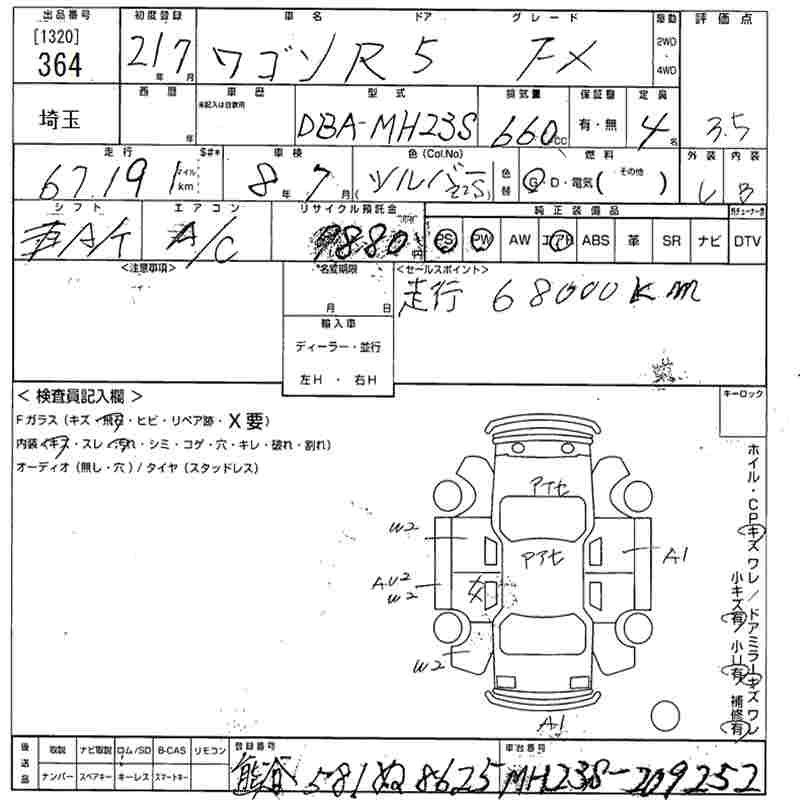 出品番号 初度登録 車名 ドア グレード 駆動 評価点
[1320] 364 21年7月 ワゴンR 5 FX 2WD・4WD 3.5
西暦 年 車歴 未記入は自家用 型式 排気量 保証書 定員
埼玉 DBA-MH23S 660cc 有・無 4名
走行 $#* 車検 色(Col.No) 色替 燃料 外装 内装
67,191 マイル km 8年7月 シルバー(Z2S) G・D・電気(その他)
シフト エアコン リサイクル預託金 純正装備品
A/T A/C 9880円 PS PW AW エアB ABS 革 SR ナビ DTV
<注意事項> 名変期限 月 日 <セールスポイント>
走行 68000km
輸入車
ディーラー・並行
左H・右H
キーロック
<検査員記入欄>
Fガラス(キズ・飛石・ヒビ・リペア跡・X要)
内装(キズ・スレ・汚れ・シミ・コゲ・穴・キレ・破れ・割れ)
オーディオ(無し・穴)/タイヤ(スタッドレス)
アイセ
W2 アアセ A1
A.U2
W2
W2
A1
ホイル・CPキズワレ/ドアミラーキズワレ
小キズ有 小U有 補修有
後送品 取説 ナビ取説 ロム/SD B-CAS リモコン 登録番号 車台番号
ナンバー スペアキー キーレス スマートキー 熊谷 581 ぬ 8625 MH23S-209252